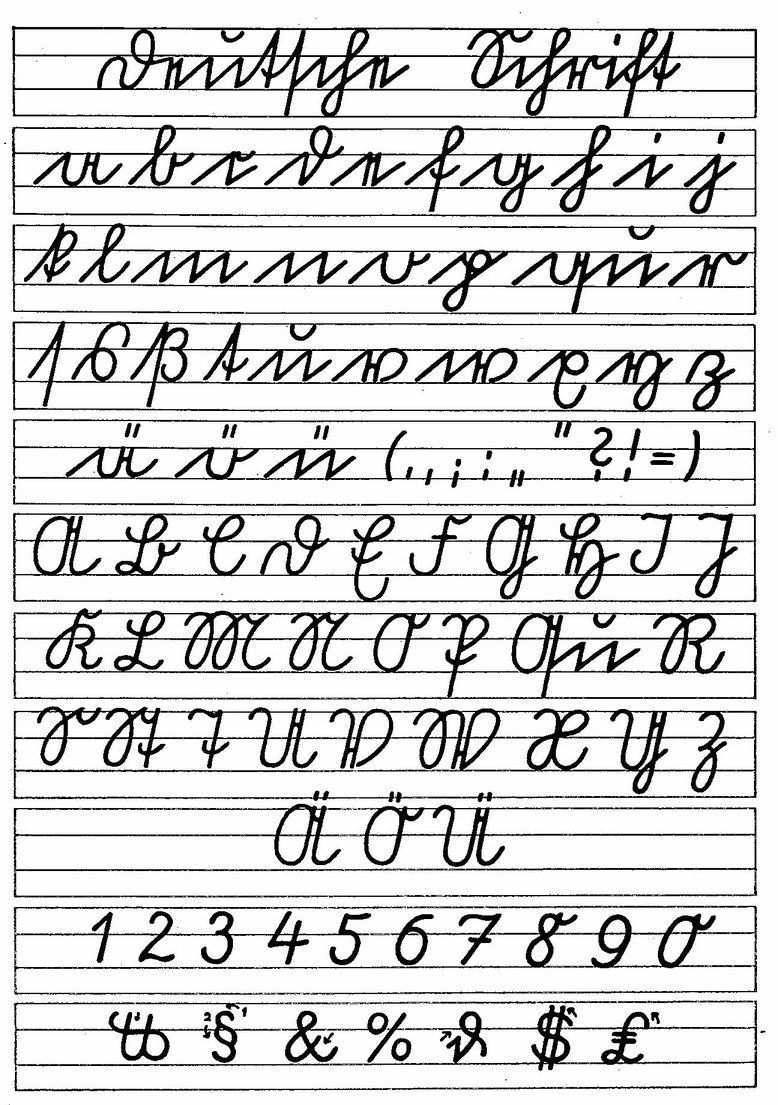 Deutsche Schrift
a b c d e f g h i j
k l m n o p qu r
ſ s ß t u v w x y z
ä ö ü (., ; : „ " ? ! = )
A B C D E F G H I J
K L M N O P Qu R
S St T U V W X Y Z
Ä Ö Ü
1 2 3 4 5 6 7 8 9 0
§ & % $ £